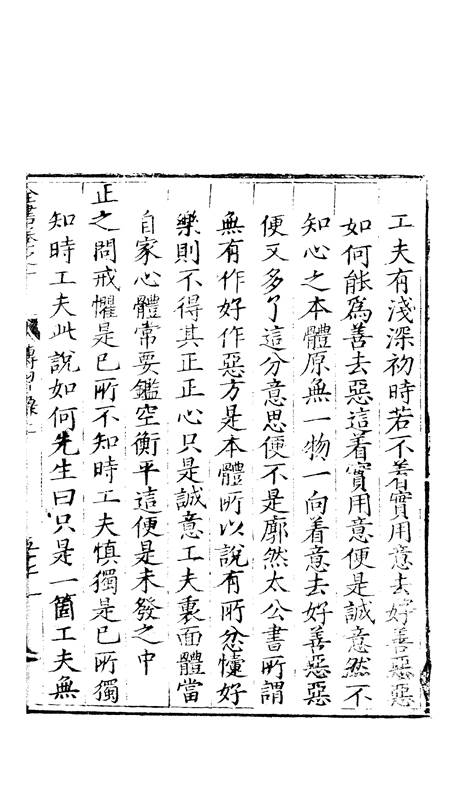 工夫有淺深初時若不着實用意去好善惡惡
如何能爲善去惡這着實用意便是誠意然不
知心之本體原無一物一向着意去好善惡惡
便又多了這分意思便不是廓然太公書所謂
無有作好作惡方是本體所以說有所忿懥好
樂則不得其正正心只是誠意工夫裏面體當
自家心體常要鑑空衡平這便是未發之中
正之問戒懼是已所不知時工夫慎獨是已所獨
知時工夫此說如何先生曰只是一箇工夫無
全書卷之一
傳習録上